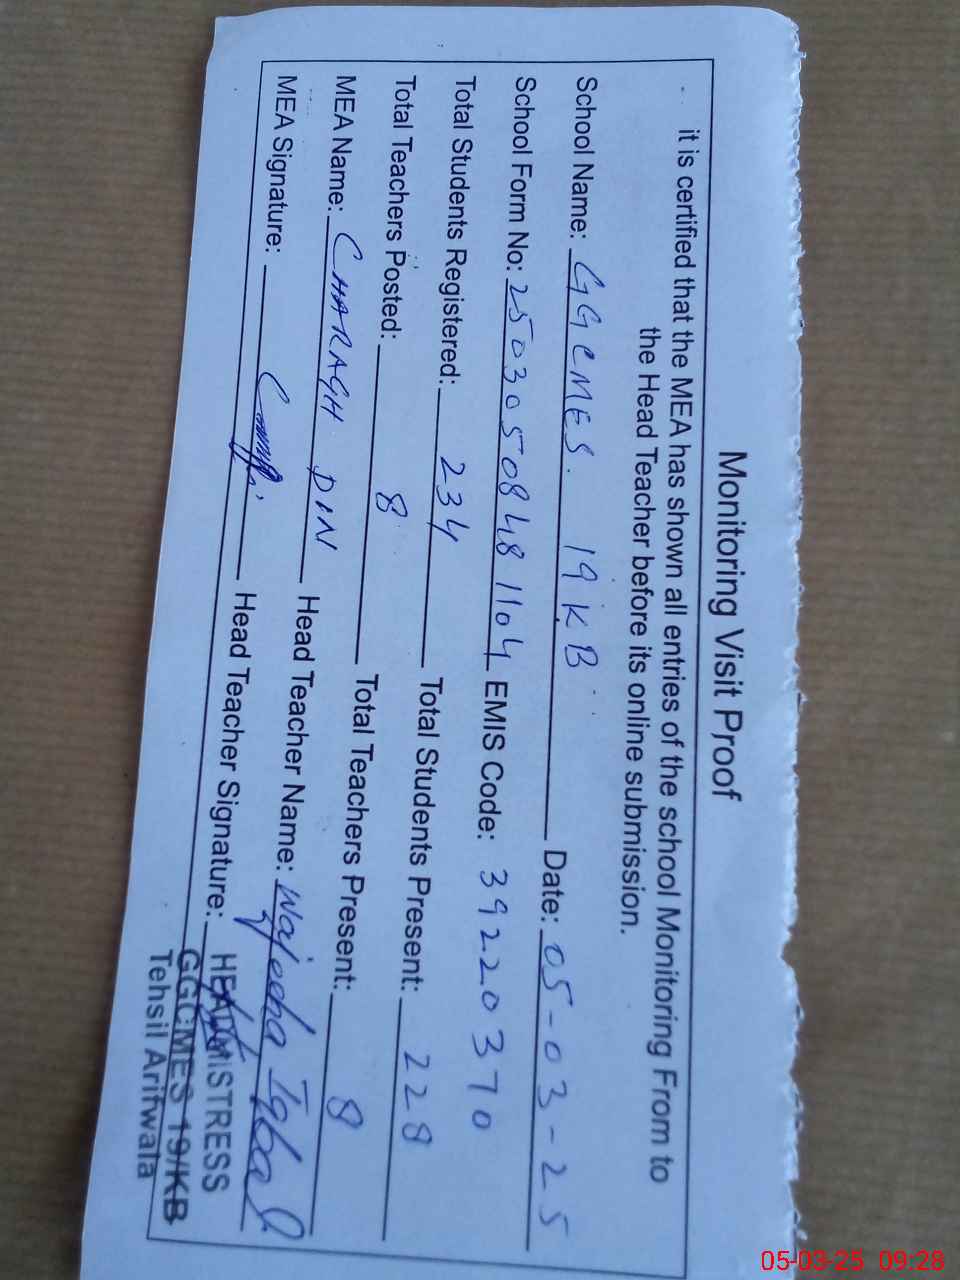 Monitoring Visit Proof
it is certified that the MEA has shown all entries of the school Monitoring From to
the Head Teacher before its online submission.
School Name: GGCMES. 19 KB Date: 05-03-25
School Form No: 25030508481104 EMIS Code: 39220370
Total Students Registered: 234 Total Students Present: 228
Total Teachers Posted: 8 Total Teachers Present: 8
MEA Name: CHARAGH DIN Head Teacher Name: Wajeeha Iqbal
MEA Signature: Head Teacher Signature:
HEADMISTRESS
GGCMES 19/KB
Tehsil Arifwala
05-03-25 09:28